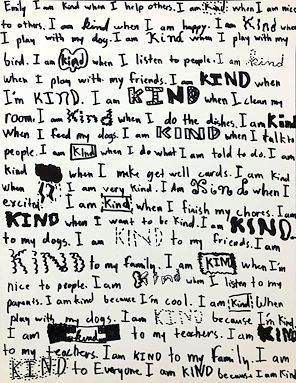 Emily I am kind when I help others. I am kind when I am nice
to others. I am kind when I am happy. I am kind when
I play with my dog. I am Kind when I play with my
bird. I am kind when I listen to people. I am kind
when I play with my friends. I am KIND when
I'm KIND. I am KIND when I clean my
room. I am Kind when I do the dishes. I am Kind
When I feed my dogs. I am KIND when I talk to
people. I am Kind when I do what I am told to do. I am
kind when I make get well cards. I am kind
when I am very kind. I Am kind when I
excited! I am Kind when I finish my chores. I am
KIND when I want to be kind. I am KIND
to my dogs. I am KIND to my friends. I am
KIND to my family. I am KIND when I'm
nice to people. I am Kind when I listen to my
parents. I am kind because I'm cool. I am Kind When
play with my dogs. I am KIND because I'm kind
I am kind to my teachers. I am KIND
to my teachers. I am KIND to my family. I am
KIND to Everyone I am KIND because I am Kind